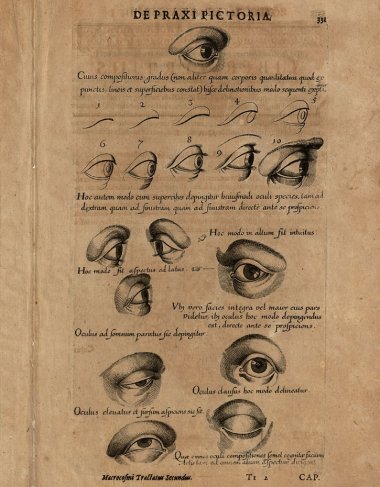 DE PRAXI PICTORIA.
331
Cuius compositionis gradus (non aliter quam corporis quantitatum quod ex
punctis, lineis et superficiebus constat) hisce delineationibus modo sequenti expli
1 2 3 4 5
6 7 8 9 10
Hoc autem modo cum supercilijs depingitur hujusmodi oculi species, tam ad
dextram quam ad sinistram quam directè ante se prospiciens.
Hoc modo in altum fit intuitus
Hoc modo fit aspectus ad latus.
Ubi verò facies integra vel maior eius pars
videtur, ibi oculus hoc modo depingendus
est, directè ante se prospiciens.
Oculus ad somnum paratus sic depingitur.
Oculus clausus hoc modo delineatur.
Oculus elevatus et sursum aspiciens sic fit.
Quae omnes oculi compositiones semel cognitae
Macrocosmi Tractatus Secundus.
Tt 2
CAP.